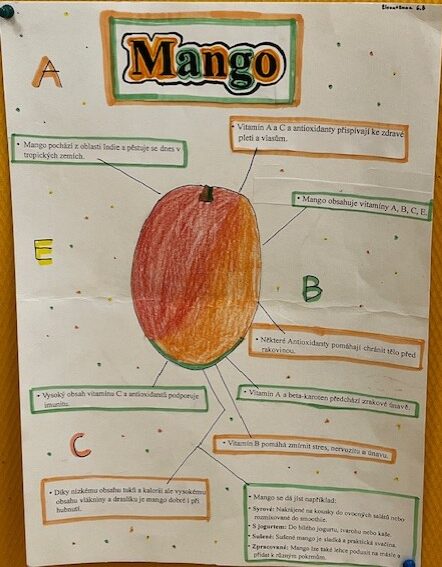 6.B
Mango
A
• Vitamín A a C a antioxidanty přispívají ke zdravé
pleti a vlasům.
• Mango pochází z oblasti Indie a pěstuje se dnes v
tropických zemích.
• Mango obsahuje vitamíny A, B, C, E.
E
B
• Některé Antioxidanty pomáhají chránit tělo před
rakovinou.
• Vysoký obsah vitamínu C a antioxidantů podporuje
imunitu.
• Vitamín A a beta-karoten předchází zrakové únavě.
C
• Vitamín B pomáhá zmírnit stres, nervozitu a únavu.
• Díky nízkému obsahu tuků a kalorií ale vysokému
obsahu vlákniny a draslíku je mango dobré i při
hubnutí.
• Mango se dá jíst například:
• Syrové: Nakrájené na kousky do ovocných salátů nebo
rozmixované do smoothie.
• S jogurtem: Do bílého jogurtu, tvarohu nebo kaše.
• Sušené: Sušené mango je sladká a praktická svačina.
• Zpracované: Mango lze také lehce podusit na másle a
přidat k různým pokrmům.